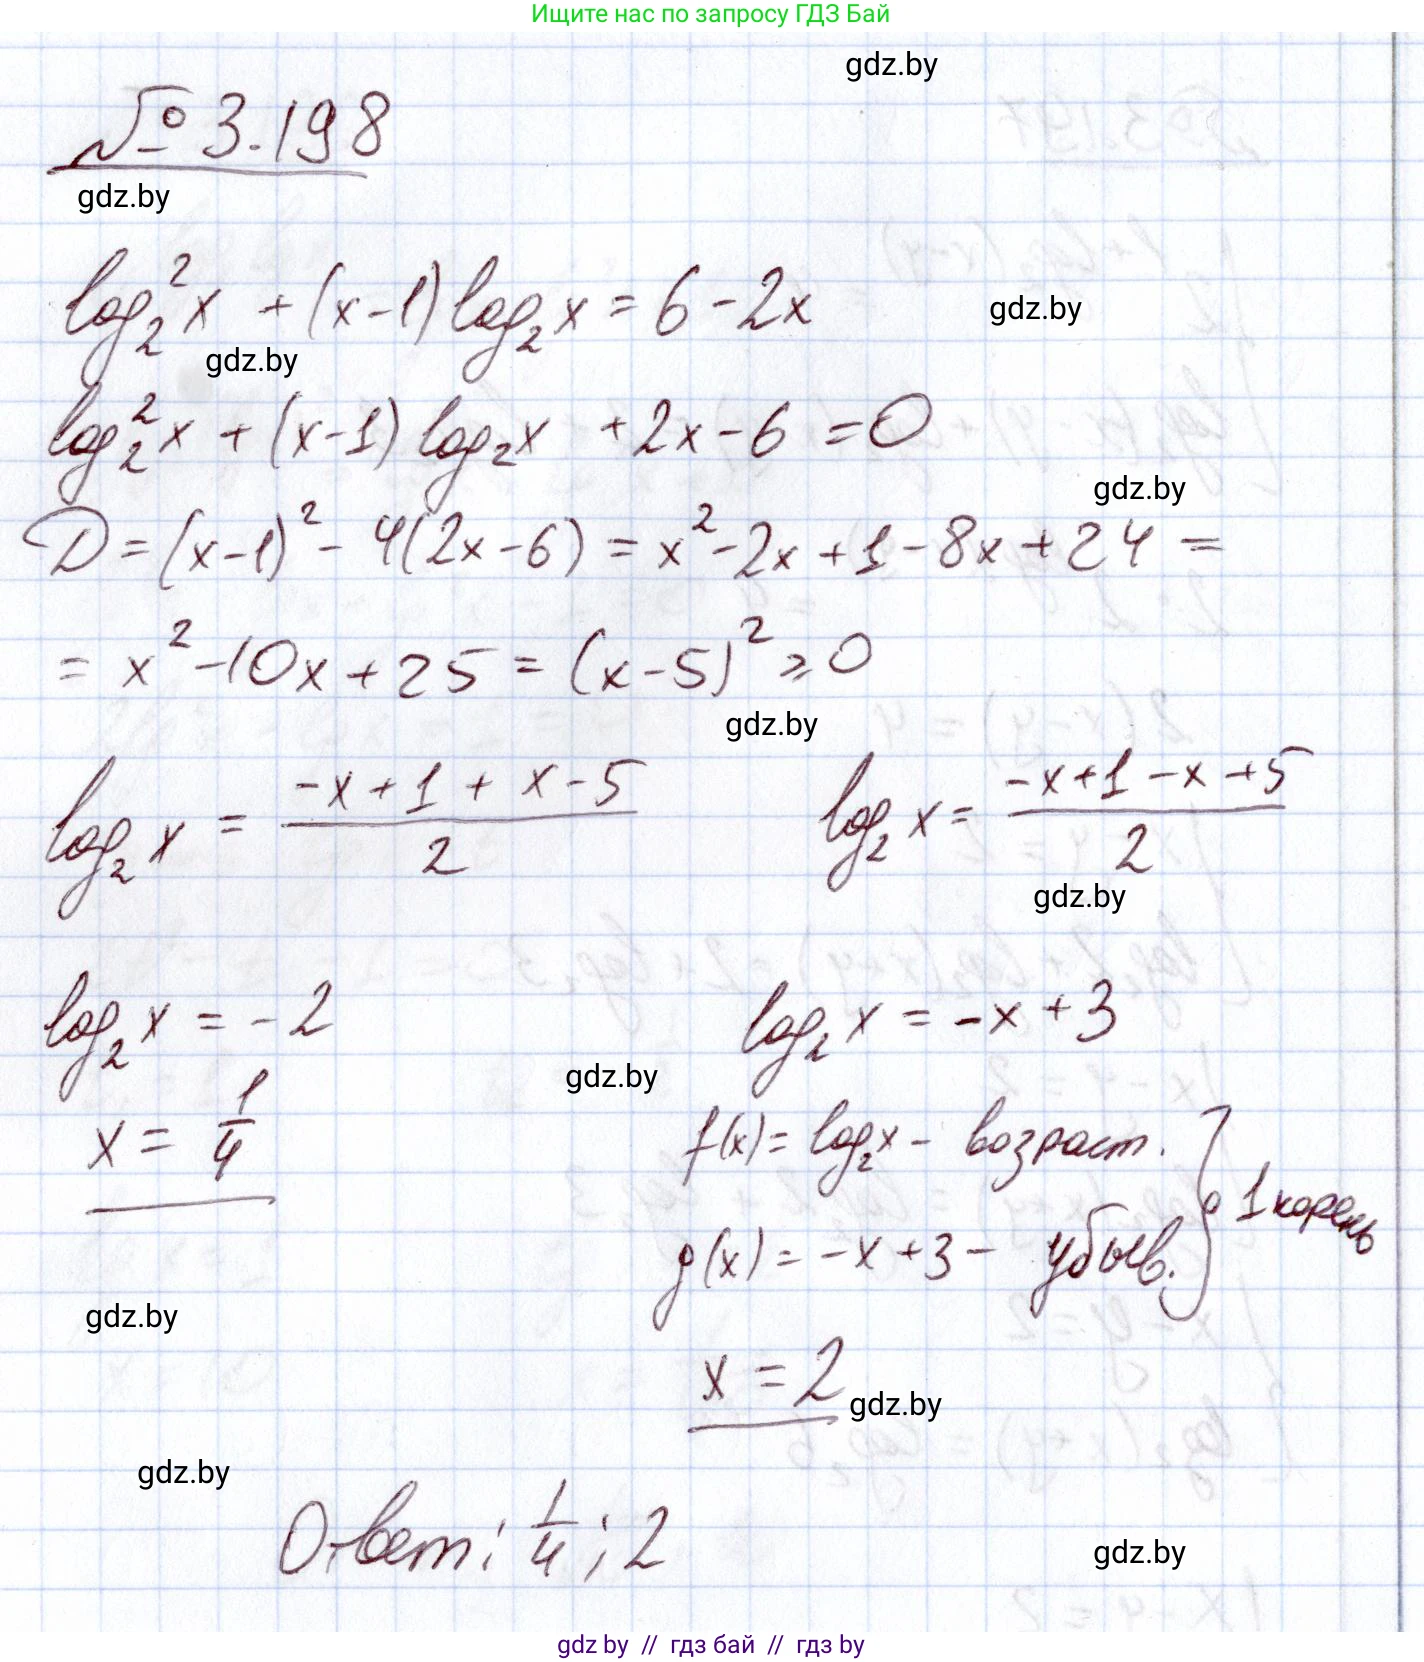 Ищите нас по запросу ГДЗ Бай
gdz.by
№ 3.198
gdz.by
log₂²x + (x-1) log₂x = 6 - 2x
gdz.by
gdz.by
log₂²x + (x-1) log₂x + 2x - 6 = 0
gdz.by
D = (x-1)² - 4(2x-6) = x² - 2x + 1 - 8x + 24 =
= x² - 10x + 25 = (x-5)² ≥ 0
gdz.by
log₂x = (-x+1+x-5)/2 log₂x = (-x+1-x+5)/2
gdz.by
log₂x = -2 log₂x = -x+3
gdz.by
x = 1/4 f(x) = log₂x - возраст.
} 1 корень
g(x) = -x+3 - убыв.
gdz.by
x = 2
gdz.by
gdz.by
Ответ: 1/4; 2
gdz.by
gdz.by // гдз бай // гдз by